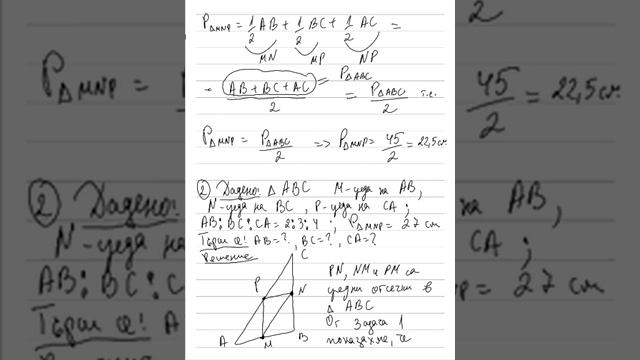 P△MNP = 1/2 AB + 1/2 BC + 1/2 AC =
MN MP NP
= (AB + BC + AC)/2 = P△ABC/2 т.е.
P△ABC
P△MNP = P△ABC/2 => P△MNP = 45/2 = 22,5 см
② Дадено: △ABC M-среда на AB,
N-среда на BC, P-среда на CA;
AB:BC:CA = 2:3:4, P△MNP = 27 см
Търси се: AB=?, BC=?, CA=?
Решение
C
P N
A M B
PN, NM и PM са
средни отсечки в
△ ABC
От Задача 1
показахме, че